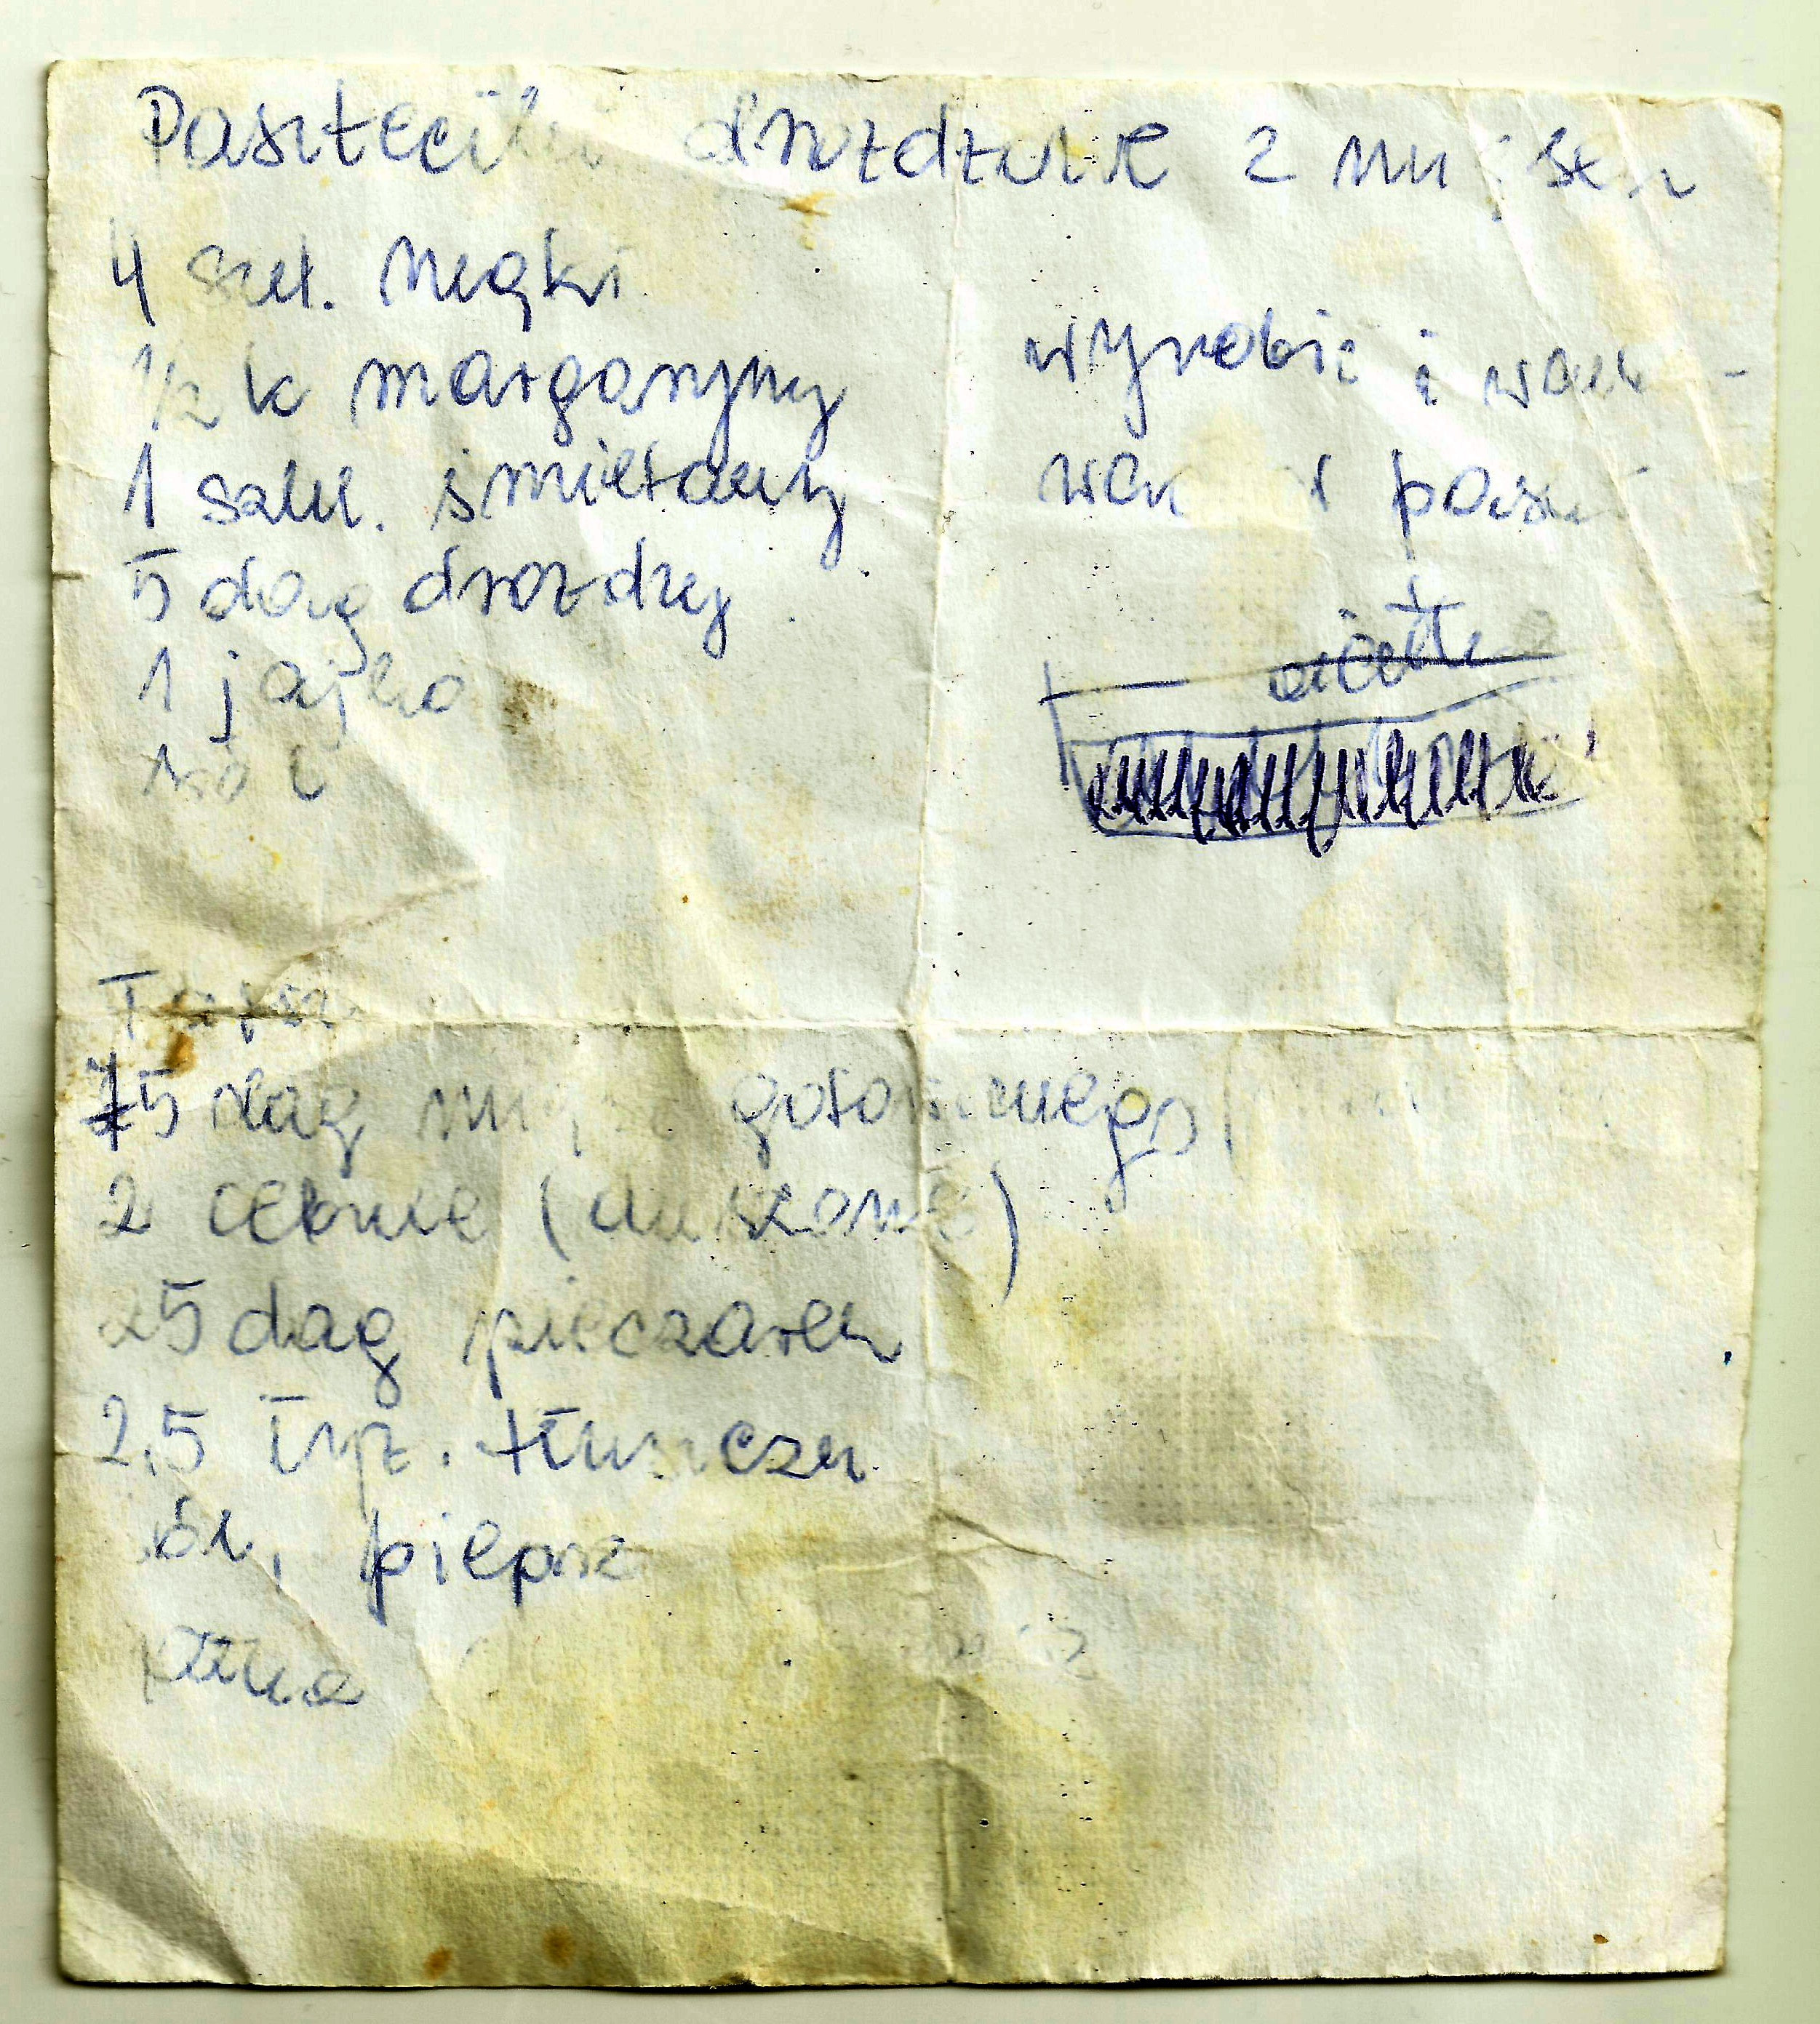 Paszteciki drożdżowe z mięsem
4 szkl. mąki
1/2 k margaryny
1 szkl. śmietany
5 dag drożdży
1 jajko
sól
wyrobić i
pasek
ciasto
Farsz
75 dag mięsa gotowanego
2 cebule (duszone)
25 dag pieczarek
2,5 łyż. tłuszczu
sól, pieprz